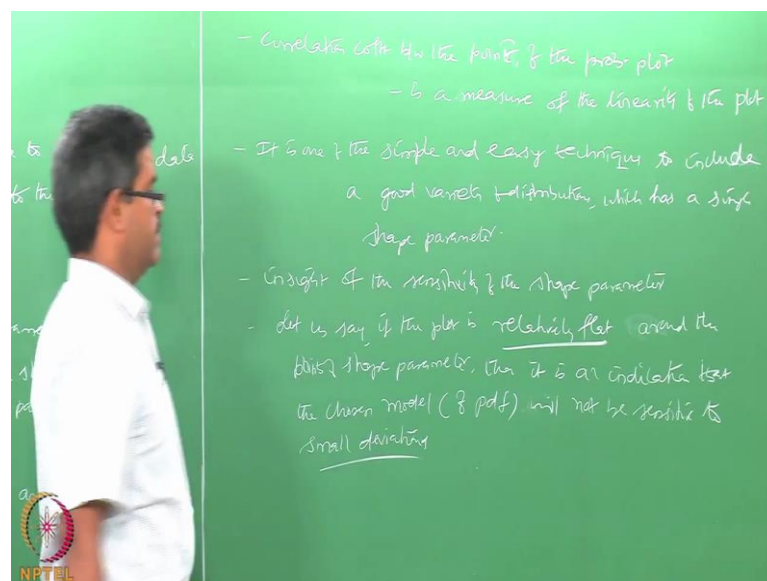 to date
to the
- Correlation coeff b/w the points of the prob plot
- is a measure of the linearity of the plot
- It is one of the simple and easy technique to include
a good variety of distribution, which has a single
shape parameter.
- insight of the sensitivity of the shape parameter
- Let us say, if the plot is relatively flat around the
point of shape parameter, then it is an indication that
the chosen model (of pdf) will not be sensitive to
small deviations
NPTEL